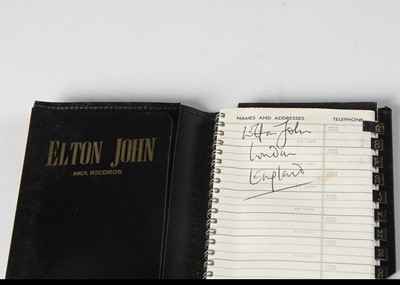 ELTON JOHN
MCA RECORDS
NAMES AND ADDRESSES TELEPHONE
Elton John
London
England